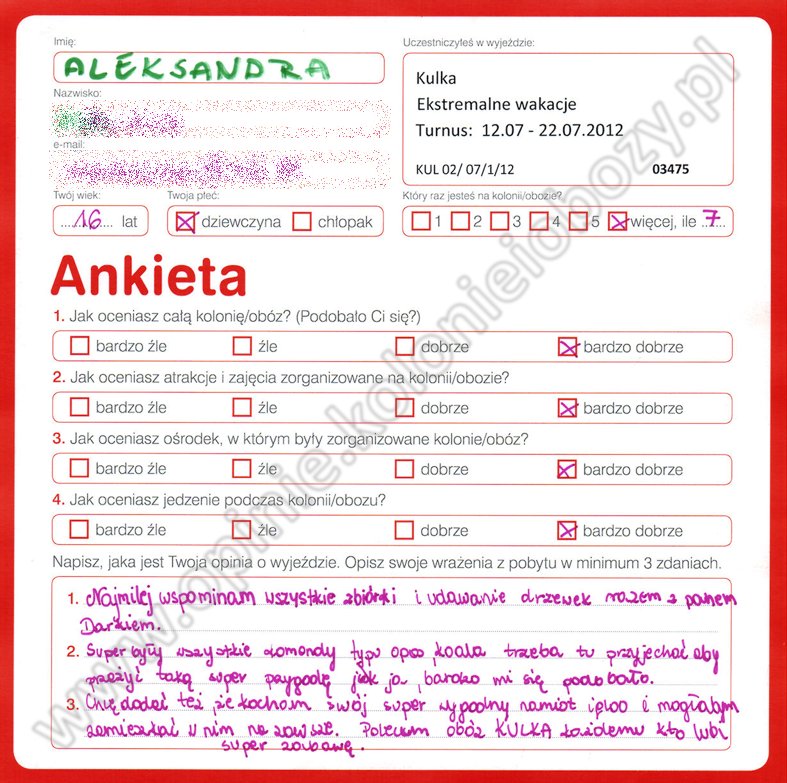 Imię:
ALEKSANDRA
Uczestniczyłeś w wyjeździe:
Kulka
Ekstremalne wakacje
Turnus: 12.07 - 22.07.2012
KUL 02/ 07/1/12 03475
Nazwisko:
e-mail:
Twój wiek:
...16... lat
Twoja płeć:
dziewczyna chłopak
Który raz jesteś na kolonii/obozie?
1 2 3 4 5 więcej, ile ..7...
Ankieta
1. Jak oceniasz całą kolonię/obóz? (Podobało Ci się?)
bardzo źle źle dobrze bardzo dobrze
2. Jak oceniasz atrakcje i zajęcia zorganizowane na kolonii/obozie?
bardzo źle źle dobrze bardzo dobrze
3. Jak oceniasz ośrodek, w którym były zorganizowane kolonie/obóz?
bardzo źle źle dobrze bardzo dobrze
4. Jak oceniasz jedzenie podczas kolonii/obozu?
bardzo źle źle dobrze bardzo dobrze
Napisz, jaka jest Twoja opinia o wyjeździe. Opisz swoje wrażenia z pobytu w minimum 3 zdaniach.
1. Najmilej wspominam wszystkie zbiórki i udawanie drzewek razem z panem
Darkiem.
2. Super były wszystkie komendy typu opos, koala trzeba tu przyjechać aby
przeżyć taką super przygodę jak ja, bardzo mi się podobało.
3. Chcę dodać też, że kocham swój super wygodny namiot igloo i mogłabym
zamieszkać w nim na zawsze. Polecam obóz KULKA każdemu kto lubi
super zabawę.
www.opinie.kolonieiobozy.pl